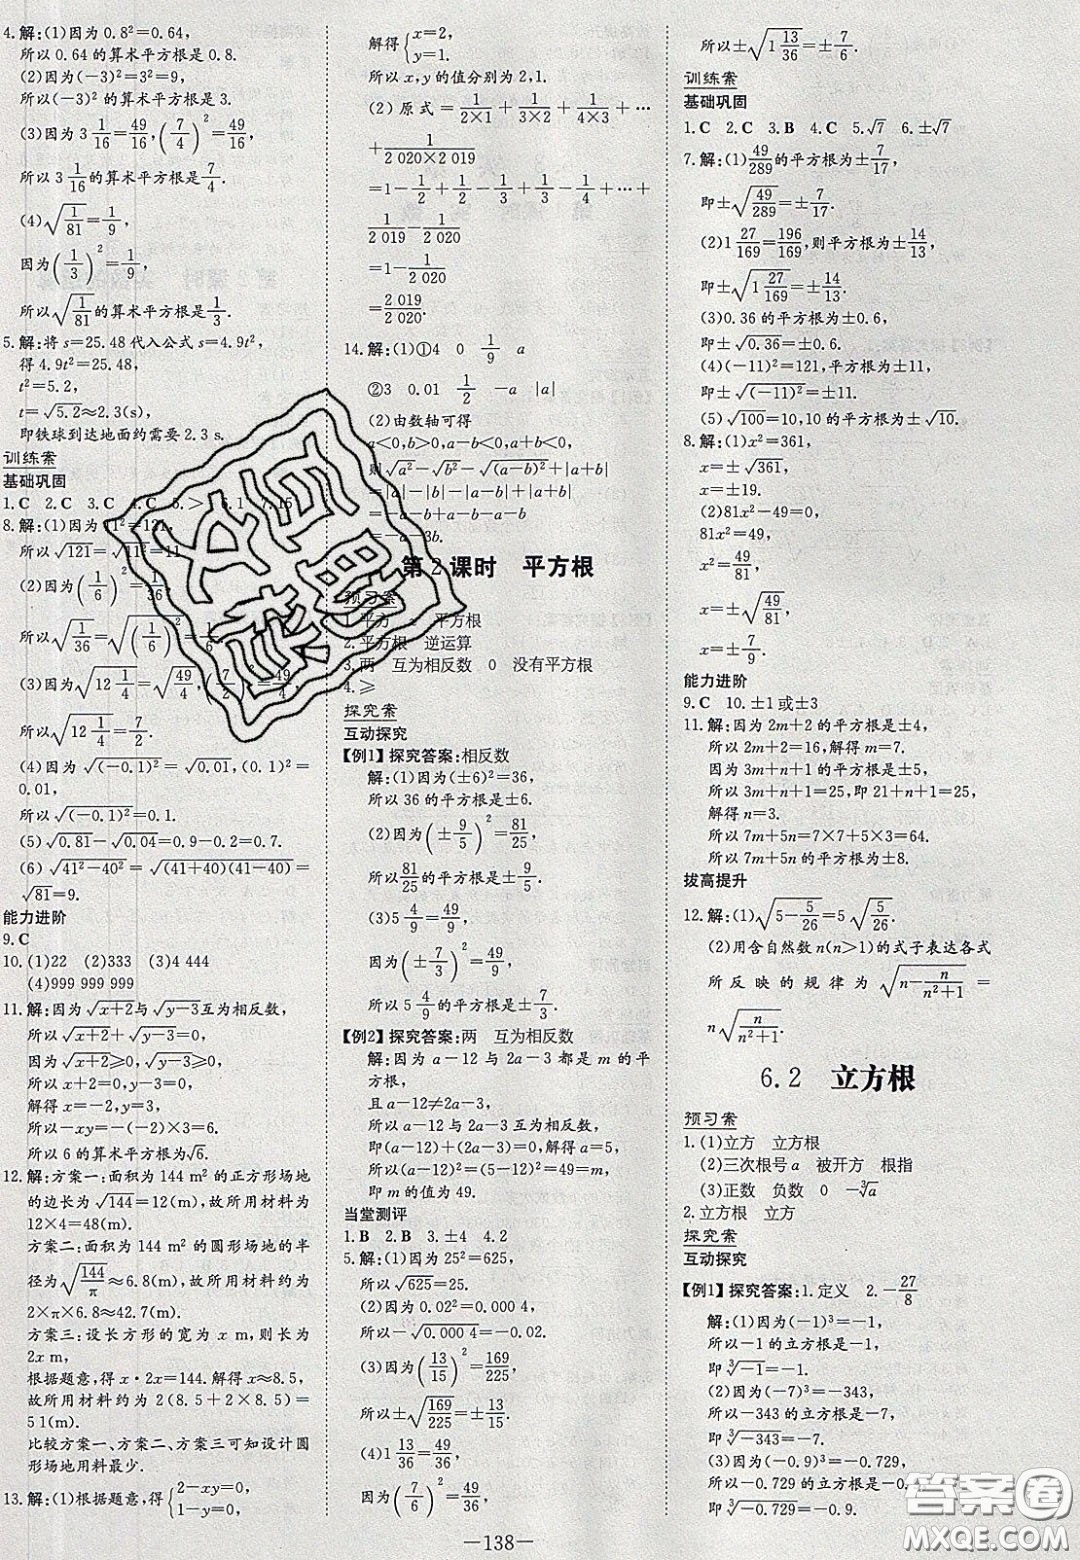 4.解:(1)因为0.8²=0.64,
所以0.64的算术平方根是0.8.
(2)因为(-3)²=3²=9,
所以(-3)²的算术平方根是3.
(3)因为3 1/16=49/16,(7/4)²=49/16,
所以3 1/16的算术平方根是7/4.
(4)√(1/81)=1/9,
因为(1/3)²=1/9,
所以√(1/81)的算术平方根是1/3.
5.解:将s=25.48代入公式s=4.9t²,
得4.9t²=25.48,
t²=5.2,
t=√5.2≈2.3(s),
即铁球到达地面约需要2.3 s.
训练案
基础巩固
1.C 2.C 3.C 4.C 5.> 6.1 7.15
8.解:(1)因为11²=121,
所以√121=√11²=11
(2)因为(1/6)²=1/36,
所以√(1/36)=√((1/6)²)
(3)因为√(12 1/4)=√(49/4),(7/2)²=49/4,
所以√(12 1/4)=7/2.
(4)因为√(-0.1)²=√0.01,(0.1)²=
0.01,
所以√(-0.1)²=0.1.
(5)√0.81-√0.04=0.9-0.2=0.7.
(6)√(41²-40²)=√((41+40)(41-40))=
√81=9.
能力进阶
9.C
10.(1)22 (2)333 (3)4 444
(4)999 999 999
11.解:因为√(x+2)与√(y-3)互为相反数,
所以√(x+2)+√(y-3)=0,
因为√(x+2)≥0,√(y-3)≥0,
所以x+2=0,y-3=0,
解得x=-2,y=3,
所以-xy=-(-2)×3=6.
所以6的算术平方根为√6.
12.解:方案一:面积为144 m²的正方形场地
的边长为√144=12(m),故所用材料为
12×4=48(m).
方案二:面积为144 m²的圆形场地的半
径为√(144/π)≈6.8(m),故所用材料约为
2×π×6.8≈42.7(m).
方案三:设长方形的宽为x m,则长为
2x m,
根据题意,得x·2x=144.解得x≈8.5,
故所用材料约为2(8.5+2×8.5)=
51(m).
比较方案一、方案二、方案三可知设计圆
形场地用料最少.
13.解:(1)根据题意,得{2-xy=0, 1-y=0,
解得{x=2, y=1.
所以x,y的值分别为2,1.
(2)原式=1/(2×1)+1/(3×2)+1/(4×3)+…
+1/(2 020×2 019)
=1-1/2+1/2-1/3+1/3-1/4+…+
1/2 019-1/2 020
=1-1/2 020
=2 019/2 020.
14.解:(1)①4 0 1/9 a
②3 0.01 1/2 -a |a|
(2)由数轴可得
a<0,b>0,a-b<0,
则√a²-√b²-√(a-b)²+|a+b|
=|a|-|b|-|a-b|+|a+b|
=-a-b+a-b-a-b
=-a-3b.
第2课时 平方根
预习案
1.平方 平方根
2.平方根 逆运算
3.两 互为相反数 0 没有平方根
4.≥
探究案
互动探究
【例1】探究答案:相反数
解:(1)因为(±6)²=36,
所以36的平方根是±6.
(2)因为(±9/5)²=81/25,
所以81/25的平方根是±9/5.
(3)5 4/9=49/9,
因为(±7/3)²=49/9,
所以5 4/9的平方根是±7/3.
【例2】探究答案:两 互为相反数
解:因为a-12与2a-3都是m的平
方根,
且a-12≠2a-3,
所以a-12与2a-3互为相反数,
即(a-12)+(2a-3)=0,解得a=5,
所以m=(a-12)²=(5-12)²=49,
即m的值为49.
当堂测评
1.B 2.B 3.±4 4.2
5.解:(1)因为25²=625,
所以√625=25.
(2)因为0.02²=0.000 4,
所以-√0.000 4=-0.02.
(3)因为(13/15)²=169/225,
所以±√(169/225)=±13/15.
(4)1 13/36=49/36,
因为(7/6)²=49/36,
所以±√(1 13/36)=±7/6.
训练案
基础巩固
1.C 2.C 3.B 4.C 5.√7 6.±√7
7.解:(1)49/289的平方根为±7/17,
即±√(49/289)=±7/17.
(2)1 27/169=196/169,则平方根为±14/13,
即±√(1 27/169)=±14/13.
(3)0.36的平方根为±0.6,
即±√0.36=±0.6.
(4)(-11)²=121,平方根为±11,
即±√(-11)²=±11.
(5)√100=10,10的平方根为±√10.
8.解:(1)x²=361,
x=±√361,
x=±19.
(2)81x²-49=0,
81x²=49,
x²=49/81,
x=±√(49/81),
x=±7/9.
能力进阶
9.C 10.±1或±3
11.解:因为2m+2的平方根是±4,
所以2m+2=16,解得m=7.
因为3m+n+1的平方根是±5,
所以3m+n+1=25,即21+n+1=25,
解得n=3.
所以7m+5n=7×7+5×3=64.
所以7m+5n的平方根为±8.
拔高提升
12.解:(1)√(5-5/26)=5√(5/26)
(2)用含自然数n(n>1)的式子表达各式
所反映的规律为√(n-n/(n²+1))=
n√(n/(n²+1)).
6.2 立方根
预习案
1.(1)立方 立方根
(2)三次根号a 被开方 根指
(3)正数 负数 0 -∛a
2.立方根 立方
探究案
互动探究
【例1】探究答案:1.定义 2.-27/8
解:(1)因为(-1)³=-1,
所以-1的立方根是-1,
即∛-1=-1.
(2)因为(-7)³=-343,
所以-343的立方根是-7,
即∛-343=-7.
(3)因为(-0.9)³=-0.729,
所以-0.729的立方根是
即∛-0.729=
—138—
答案圈
MXQE.COM